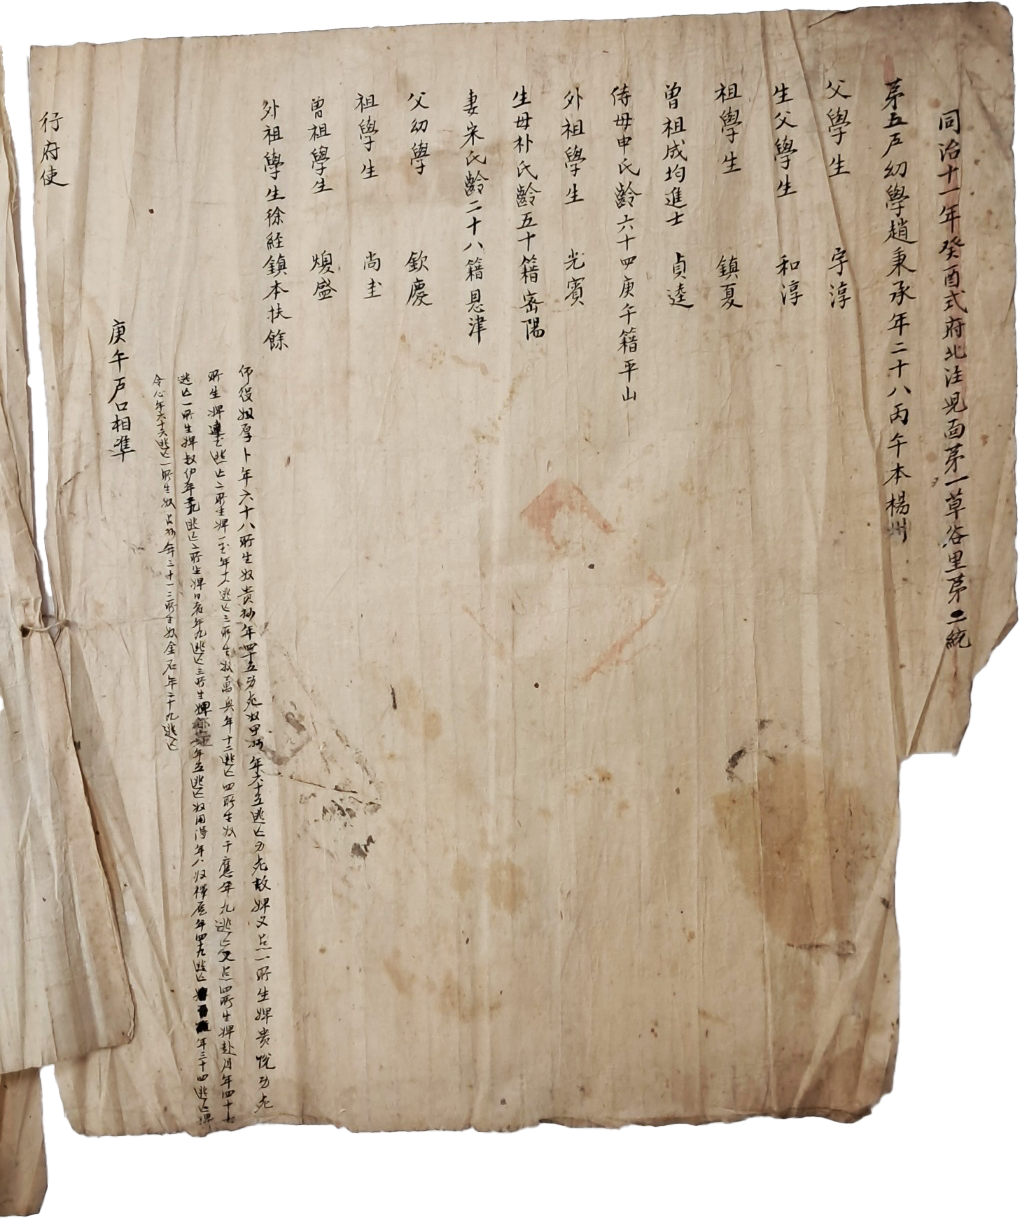 同治十一年癸酉式府北注兒面第一草谷里第二統
第五戶幼學趙秉承年二十八丙午本楊州
父學生 宇淳
生父學生 和淳
祖學生 鎮夏
曾祖成均進士 貞逵
侍母申氏齡六十四庚午籍平山
外祖學生 光賓
生母朴氏齡五十籍密陽
妻宋氏齡二十八籍恩津
父幼學 欽慶
祖學生 尚圭
曾祖學生 煥盛
外祖學生徐經鎮本扶餘
率役奴厚卜年六十八所生奴貴 年四十五 奴甲 年六十五逃亡 婢又点一所生婢貴悅
所生婢 逃亡二所生婢一 年十八逃亡三所生奴萬興年十二逃亡四所生奴千應年九逃亡又点四所生婢 月年四十七
逃亡一所生婢 年 逃亡二所生婢日 年九逃亡三所生婢 年五逃亡奴用得年八 年四十九逃亡 年三十四逃亡婢
今心年六十六逃亡一所生奴占 年三十一二所生奴金石年二十九逃亡
庚午戶口相準
行府使